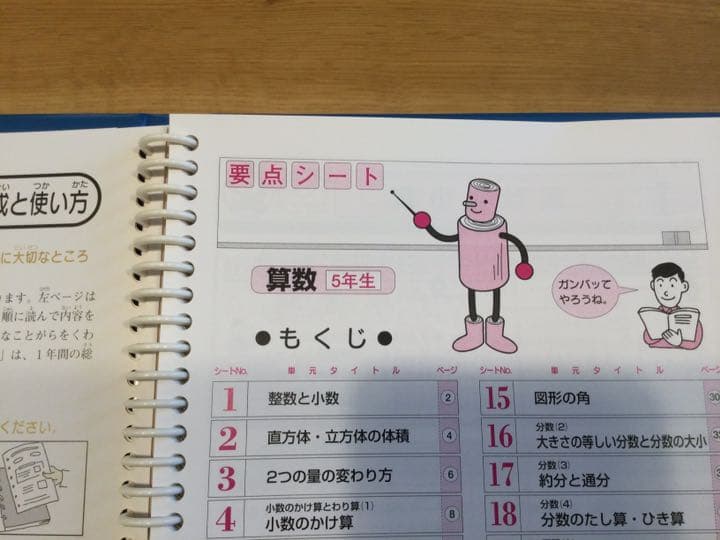 成と使い方
に大切なところ
ます。左ページは
順に読んで内容を
なことがらをくわ
」は、1年間の総
ください。
要点シート
算数 5年生
●もくじ●
ガンバッて
やろうね。
シートNo. 単元タイトル ページ
1 整数と小数 2
2 直方体・立方体の体積 4
3 2つの量の変わり方 6
小数のかけ算とわり算(1)
4 小数のかけ算 8
シートNo. 単元タイトル
15 図形の角 30
分数(2)
16 大きさの等しい分数と分数の大小
分数(3)
17 約分と通分
分数(4)
18 分数のたし算・ひき算